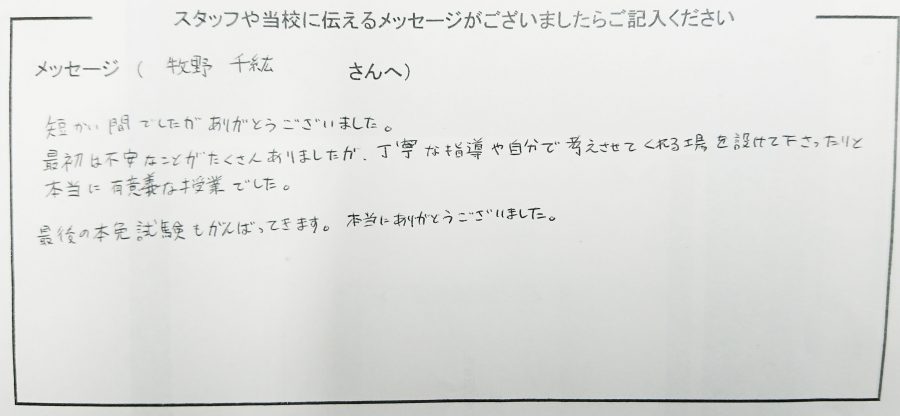 スタッフや当校に伝えるメッセージがございましたらご記入ください
メッセージ ( 牧野 千紘 さんへ)
短かい間でしたがありがとうございました。
最初は不安なことがたくさんありましたが、丁寧な指導や自分で考えさせてくれる場を設けて下さったりと
本当に有意義な授業でした。
最後の本免試験もがんばってきます。本当にありがとうございました。